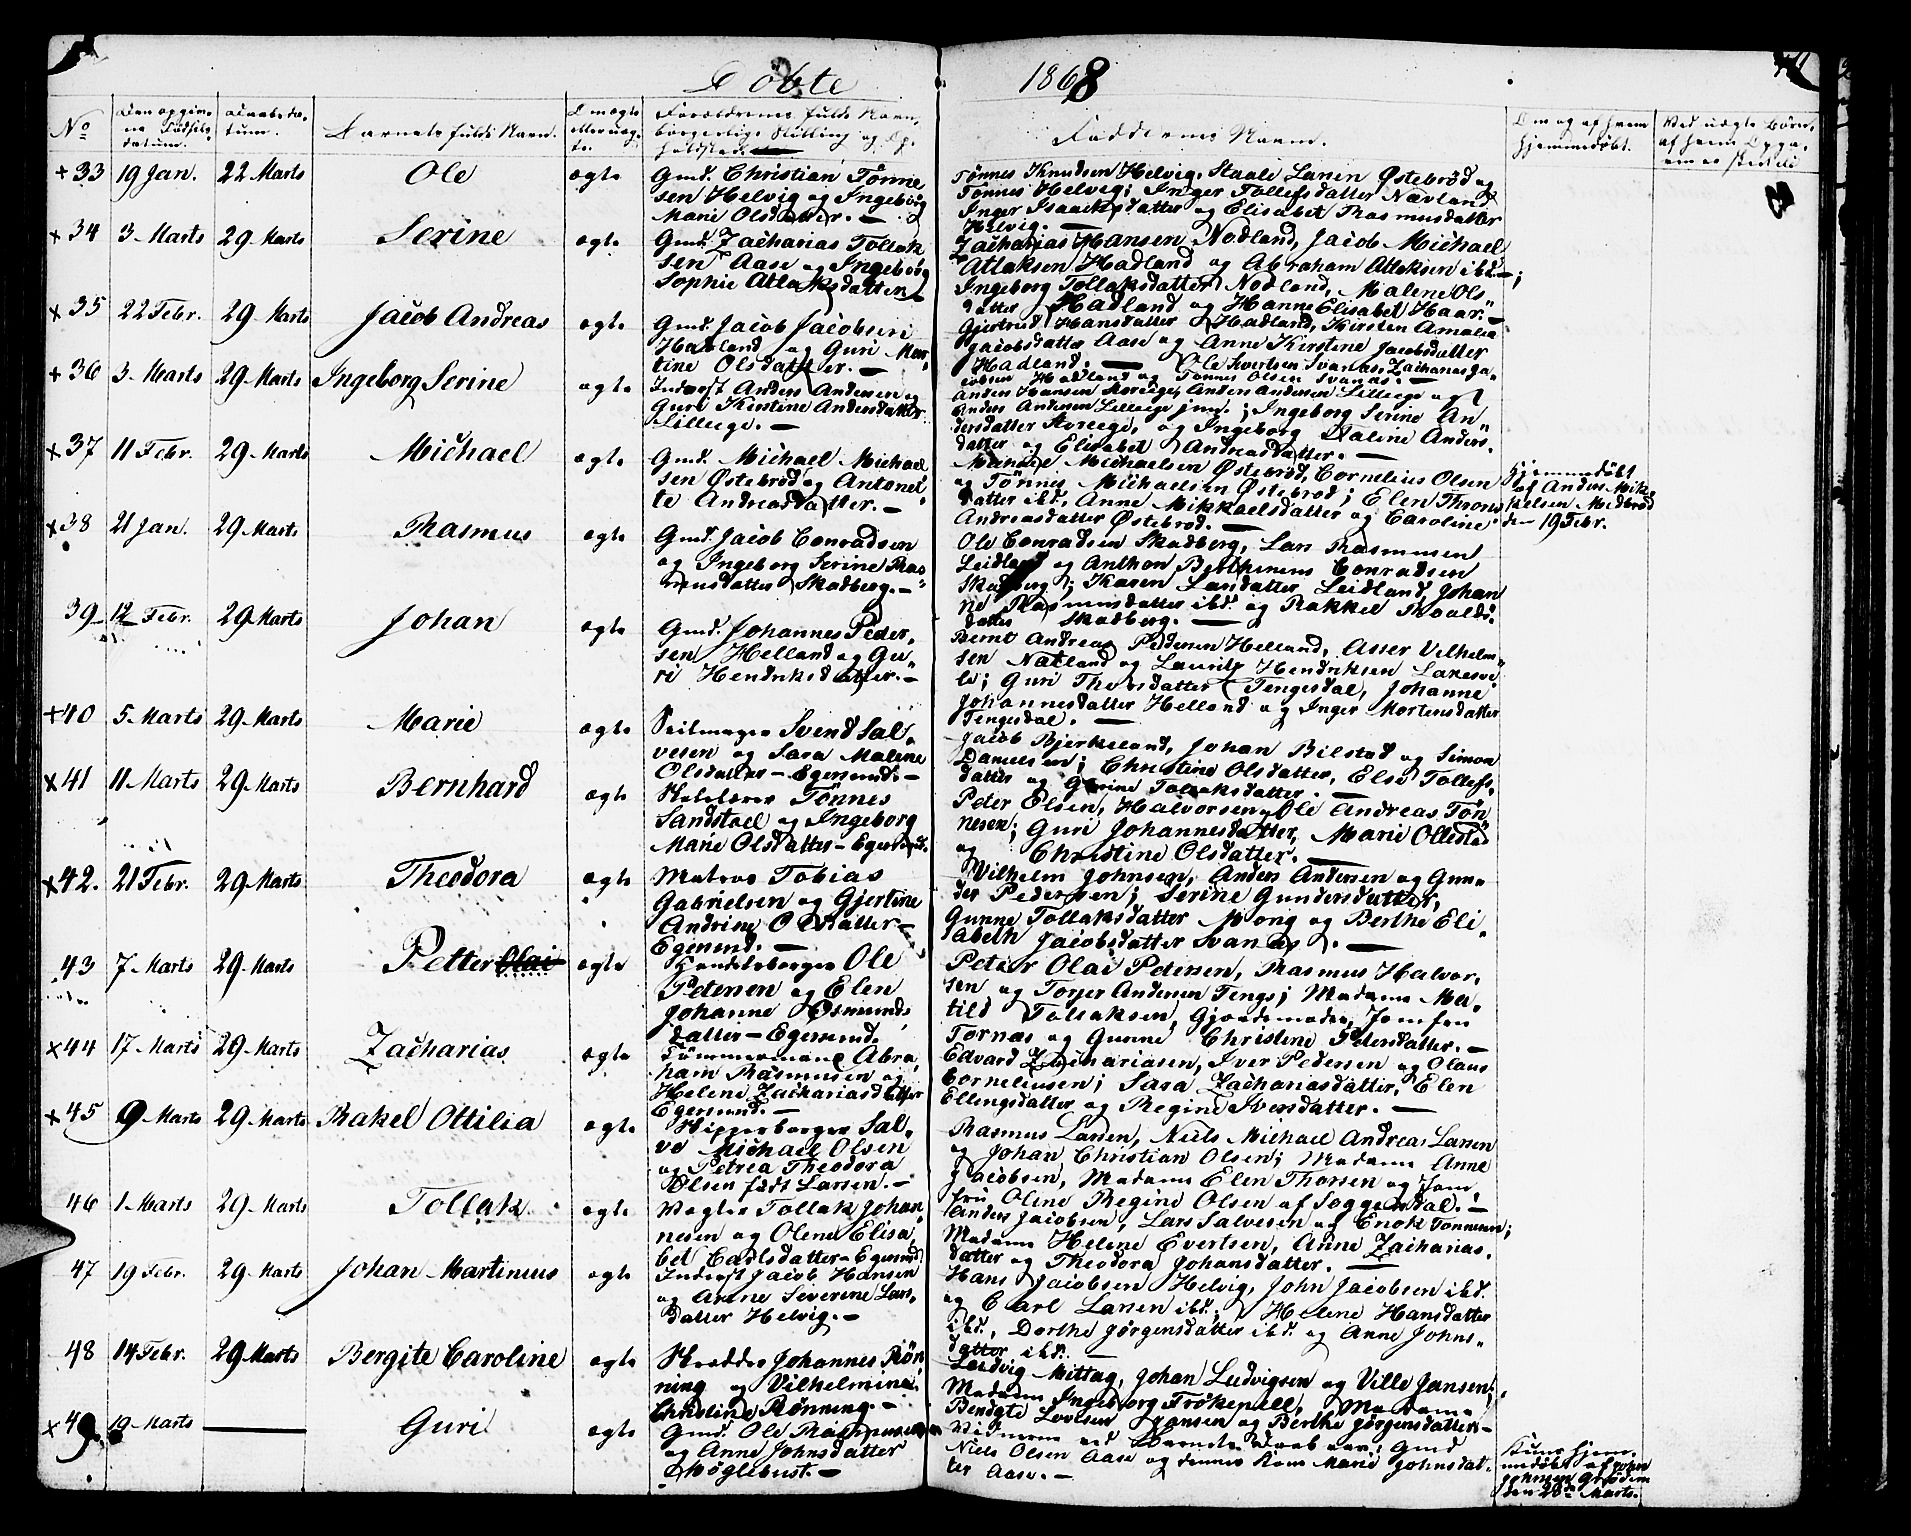 Døbte 1868
No
Den opgivne Fødselsdatum.
Daabsdatum.
Barnets fulde Navn.
Om ægte eller uægte.
Forældrenes fulde Navn, borgerlige Stilling og Opholdsted
Faddernes Navn.
Om og af hvem hjemmedøbt.
Ved uægte Børn,
+33 19 Jan. 22 Marts Ole ægte
Gmd. Christian Tønne
sen Helvig og Ingeborg
Marie Olsdatter. —
Tønnes Knudsen Helvig, Staale Larsen Østebrød og
Tønnes Helvig; Inger Tollefsdatter Nævland
Inger Isaachsdatter og Elisabet Rasmusdatter
Helvig. —
x34 3 Marts 29 Marts Serine ægte
Gmd. Zacharias Tollak
sen Aase og Ingeborg
Sophie Atlaksdatter
Zacharias Hansen Nodland, Jacob Michael
Atlaksen Hadland og Abraham Atlaksen ibd.;
Ingeborg Tollaksdatter Nodland, Malene Ols-
datter Hadland og Hanne Elisabet Haar. —
x35 22 Febr. 29 Marts Jacob Andreas ægte
Gmd. Jacob Jacobsen
Hadland og Guri Mar-
tine Olsdatter. —
Gjertrud Hansdatter Hadland, Kirsten Amalia
Jacobsdatter Aase og Anne Kirstine Jacobsdatter
Hadland; — Ole Svertsen Svanæs, Zacharias Ja-
cobsen Hadland og Tønnes Olsen Svanæs. —
+36 3 Marts 29 Marts Ingeborg Serine ægte
Inderst Anders Andersen og
Guri Kirstine Andersdatter
Lilleege. —
Anders Hansen Storeege, Anders Andersen Lilleege og
Anders Andersen Lilleege jun.; Ingeborg Serine An-
dersdatter Storeege, og Ingeborg Maline Anders-
datter og Elisabet Andreasdatter. —
x37 11 Febr. 29 Marts Michael ægte
Gmd. Michael Michael
sen Østebrød og Antonet-
te Andreasdatter. —
Michael Michaelsen Østebrød, Cornelius Olsen
og Tønnes Michaelsen Østebrød; Elen Thores
datter ibd., Anne Mikkaelsdatter og Caroline
Andreasdatter Østebrød. —
Hjemmedøbt
af Anders Mik-
kelsen Midbrød
den 19 Febr.
x38 21 Jan. 29 Marts Rasmus ægte
Gmd. Jacob Conradsen
og Ingeborg Serine Ras
musdatter Skadberg. —
Ole Conradsen Skadberg, Lars Rasmussen
Leidland og Anthon Berthinius Conradsen
Skadberg; Karen Larsdatter Leidland, Johan
ne Rasmusdatter ibd. og Rakkel Roalds-
datter Skadberg. —
39 12 Febr. 29 Marts Johan ægte
Gmd. Johannes Peder-
sen Helland og Gu-
ri Hendriksdatter. —
Bernt Andreas Pedersen Helland, Asser Vilhelm-
sen Nætland og Laurits Hendriksen Laxesve
la; Guri Thorsdatter Tengesdal, Johanne
Johannesdatter Helland og Inger Mortensdatter
Tengesdal. —
x40 5 Marts 29 Marts Marie ægte
Seilmager Svend Sal-
vesen og Sara Malene
Olsdatter — Egersund. —
Jacob Bjerkeland, Johan Bilstad og Simon
Danielsen; Christine Olsdatter, Else Tollefs-
datter og Gurine Tollaksdatter. —
x41 11 Marts 29 Marts Bernhard ægte
Skolelærer Tønnes
Sandstøl og Ingeborg
Marie Olsdatter — Egersund.
Peter Elsen, Halvorsen, Ole Andreas Tøn
nesen; Guri Johannesdatter, Marie Ollestad
og Christine Olsdatter. —
x42. 21 Febr. 29 Marts Theodora ægte
Matros Tobias
Gabrielsen og Gjertine
Andrine Olsdatter —
Egersund. —
Vilhelm Johnsen, Anders Andersen og Gun-
der Pedersen; Serine Gundersdatter,
Gunne Tollaksdatter Mong og Berthe Eli-
sabeth Jacobsdatter Svanæs. —
43 7 Marts 29 Marts Petter Olai ægte
Handelsborger Ole
Petersen og Elen
Johanne Osmunds-
datter — Egersund.
Peter Olai Petersen, Rasmus Halvor-
sen og Torjer Andersen Tengs; Madame Ma-
tild Tollaksen, Gjordemoder, Jomfru
Tornæs og Gunne Christine Petersdatter. —
x44 17 Marts 29 Marts Zacharias ægte
Tømmermand Abra-
ham Rasmussen og
Helene Zachariasdatter
Egersund. —
Edvard Zachariasen, Iver Pedersen og Olaus
Corneliussen; Sara Zachariasdatter, Elen
Ellingsdatter og Regine Iversdatter. —
x45 9 Marts 29 Marts Rakel Ottilia ægte
Skipperborger Sal-
ve Michael Olsen
og Petrea Theodora
Olsen født Larsen. —
Rasmus Larsen, Niels Michael Andreas Larsen
og Johan Christian Olsen; Madame Anne
Jacobsen, Madame Elen Thorsen og Jom-
fru Oline Regine Olsen af Soggendal. —
46 1 Marts 29 Marts Tollak ægte
Vægter Tollak Johan-
nesen og Olene Elisa-
bet Carlsdatter — Egersund
Anders Jacobsen, Lars Salvesen og Enok Tønnesen;
Madame Helene Evertsen, Anne Zacharias-
datter og Theodora Johansdatter. —
47 19 Febr. 29 Marts Johan Martinius ægte
Inderst Jacob Hansen
og Anne Severine Lars-
datter Helvig. —
Hans Jacobsen Helvig, John Jacobsen ibd.
og Carl Larsen ibd.; Helene Hansdatter
ibd., Dorthe Jørgensdatter ibd. og Anne Johns-
datter ibd.
48 14 Febr. 29 Marts Bergite Caroline ægte
Skrædder Johannes Røn
ning og Vilhelmine
Christine Rønning. —
Ludvig Mittag, Johan Ludvigsen og Ville Jansen;
Madame Ingeborg Frøkepell, Madame
Bendgte Lovise Hansen og Berthe Jørgensdatter —
x49. 19 Marts — Guri ægte
Gmd. Ole Rasmussen
og Anne Johnsdatter
Møglebust. —
Vidnerne ved Barnets Daab var: Gmd
Niels Olsen Aase og dennes Kone Marie Johnsdat-
ter Aase. —
Kun hjem-
medøbt af John
Johnsen Grødem
den 20de Marts.